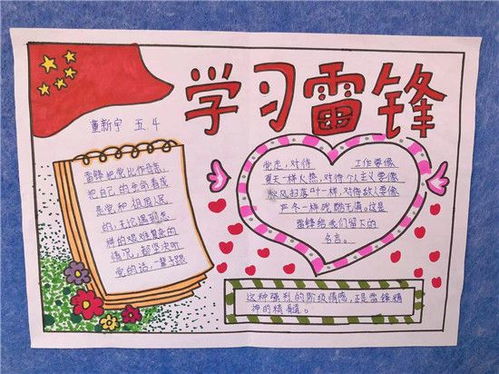 学习雷锋
董新宇 五.4
雷锋把党比作母亲,
把自己的生命看成
是党和祖国人民
的,无论遇到怎
样的艰难复杂的
情况,都坚决听
党的话,一辈子跟
党走,对待 工作要像
夏天一样火热,对待个人主义要像
秋风扫落叶一样,对待敌人要像
严冬一样残酷无情。这是
雷锋给我们留下的
名言。
这种强烈的阶级情感,正是雷锋精
神的精髓。